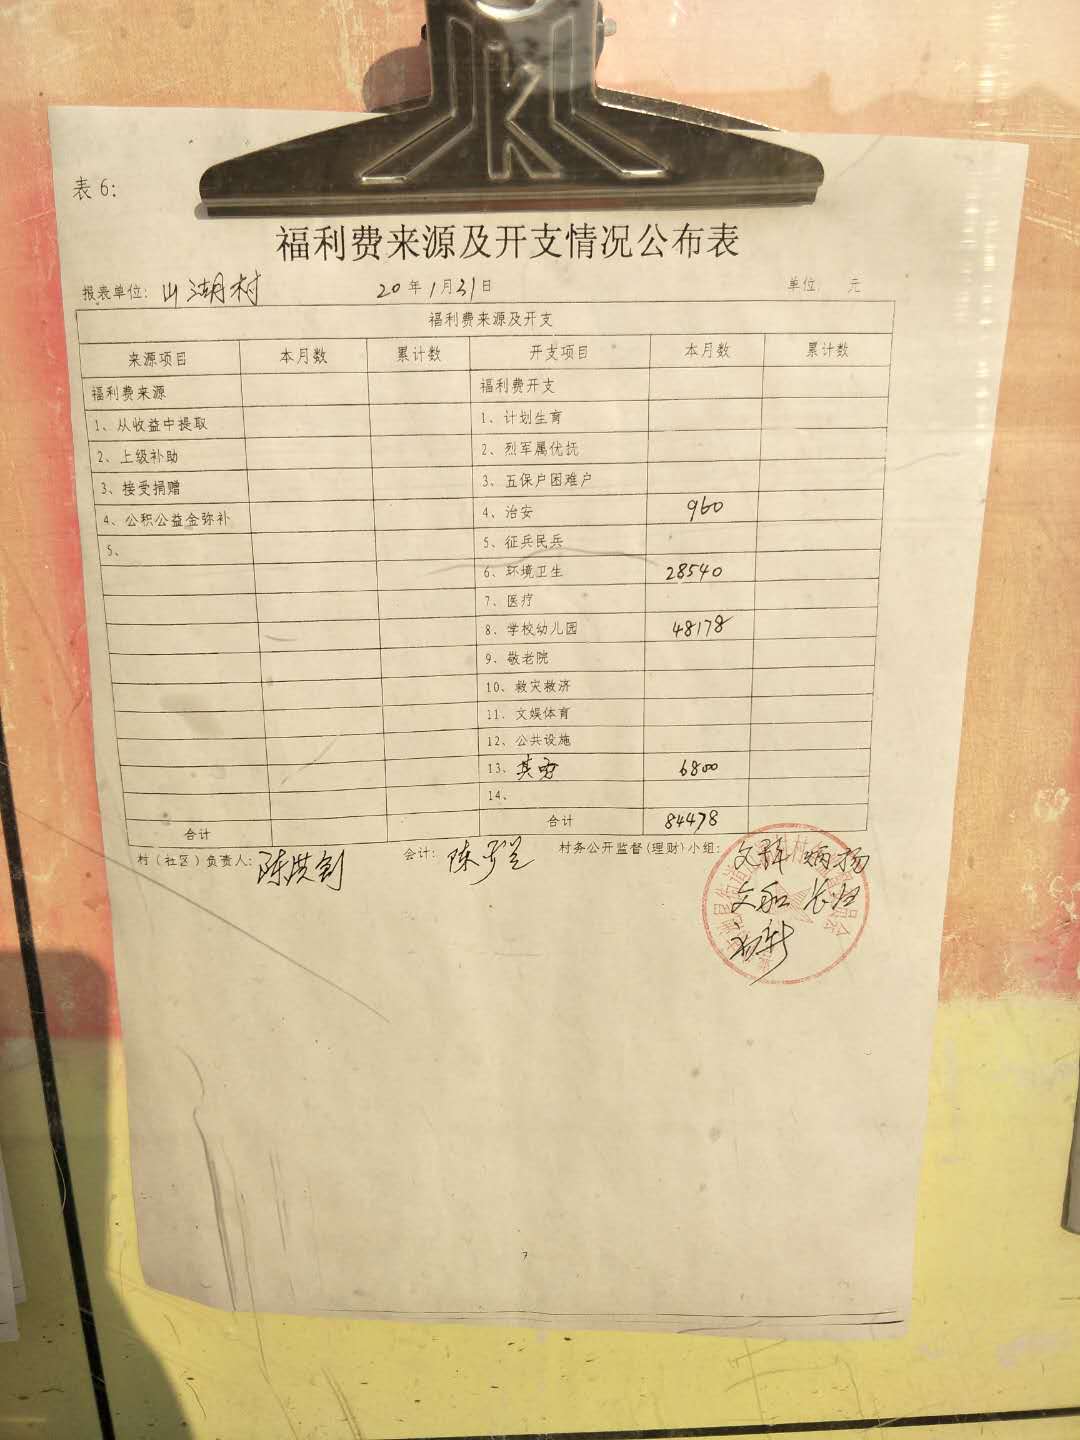 K
表 6：
福利费来源及开支情况公布表
报表单位：山湖村 20 年 1 月 31 日 单位： 元
福利费来源及开支
来源项目 本月数 累计数 开支项目 本月数 累计数
福利费来源 福利费开支
1、从收益中提取 1、计划生育
2、上级补助 2、烈军属优抚
3、接受捐赠 3、五保户困难户
4、公积公益金弥补 4、治安 960
5、 5、征兵民兵
6、环境卫生 28540
7、医疗
8、学校幼儿园 48178
9、敬老院
10、救灾救济
11、文娱体育
12、公共设施
13、其它 6800
14、
合计 合计 84478
村（社区）负责人： 会计： 村务公开监督(理财)小组：
7